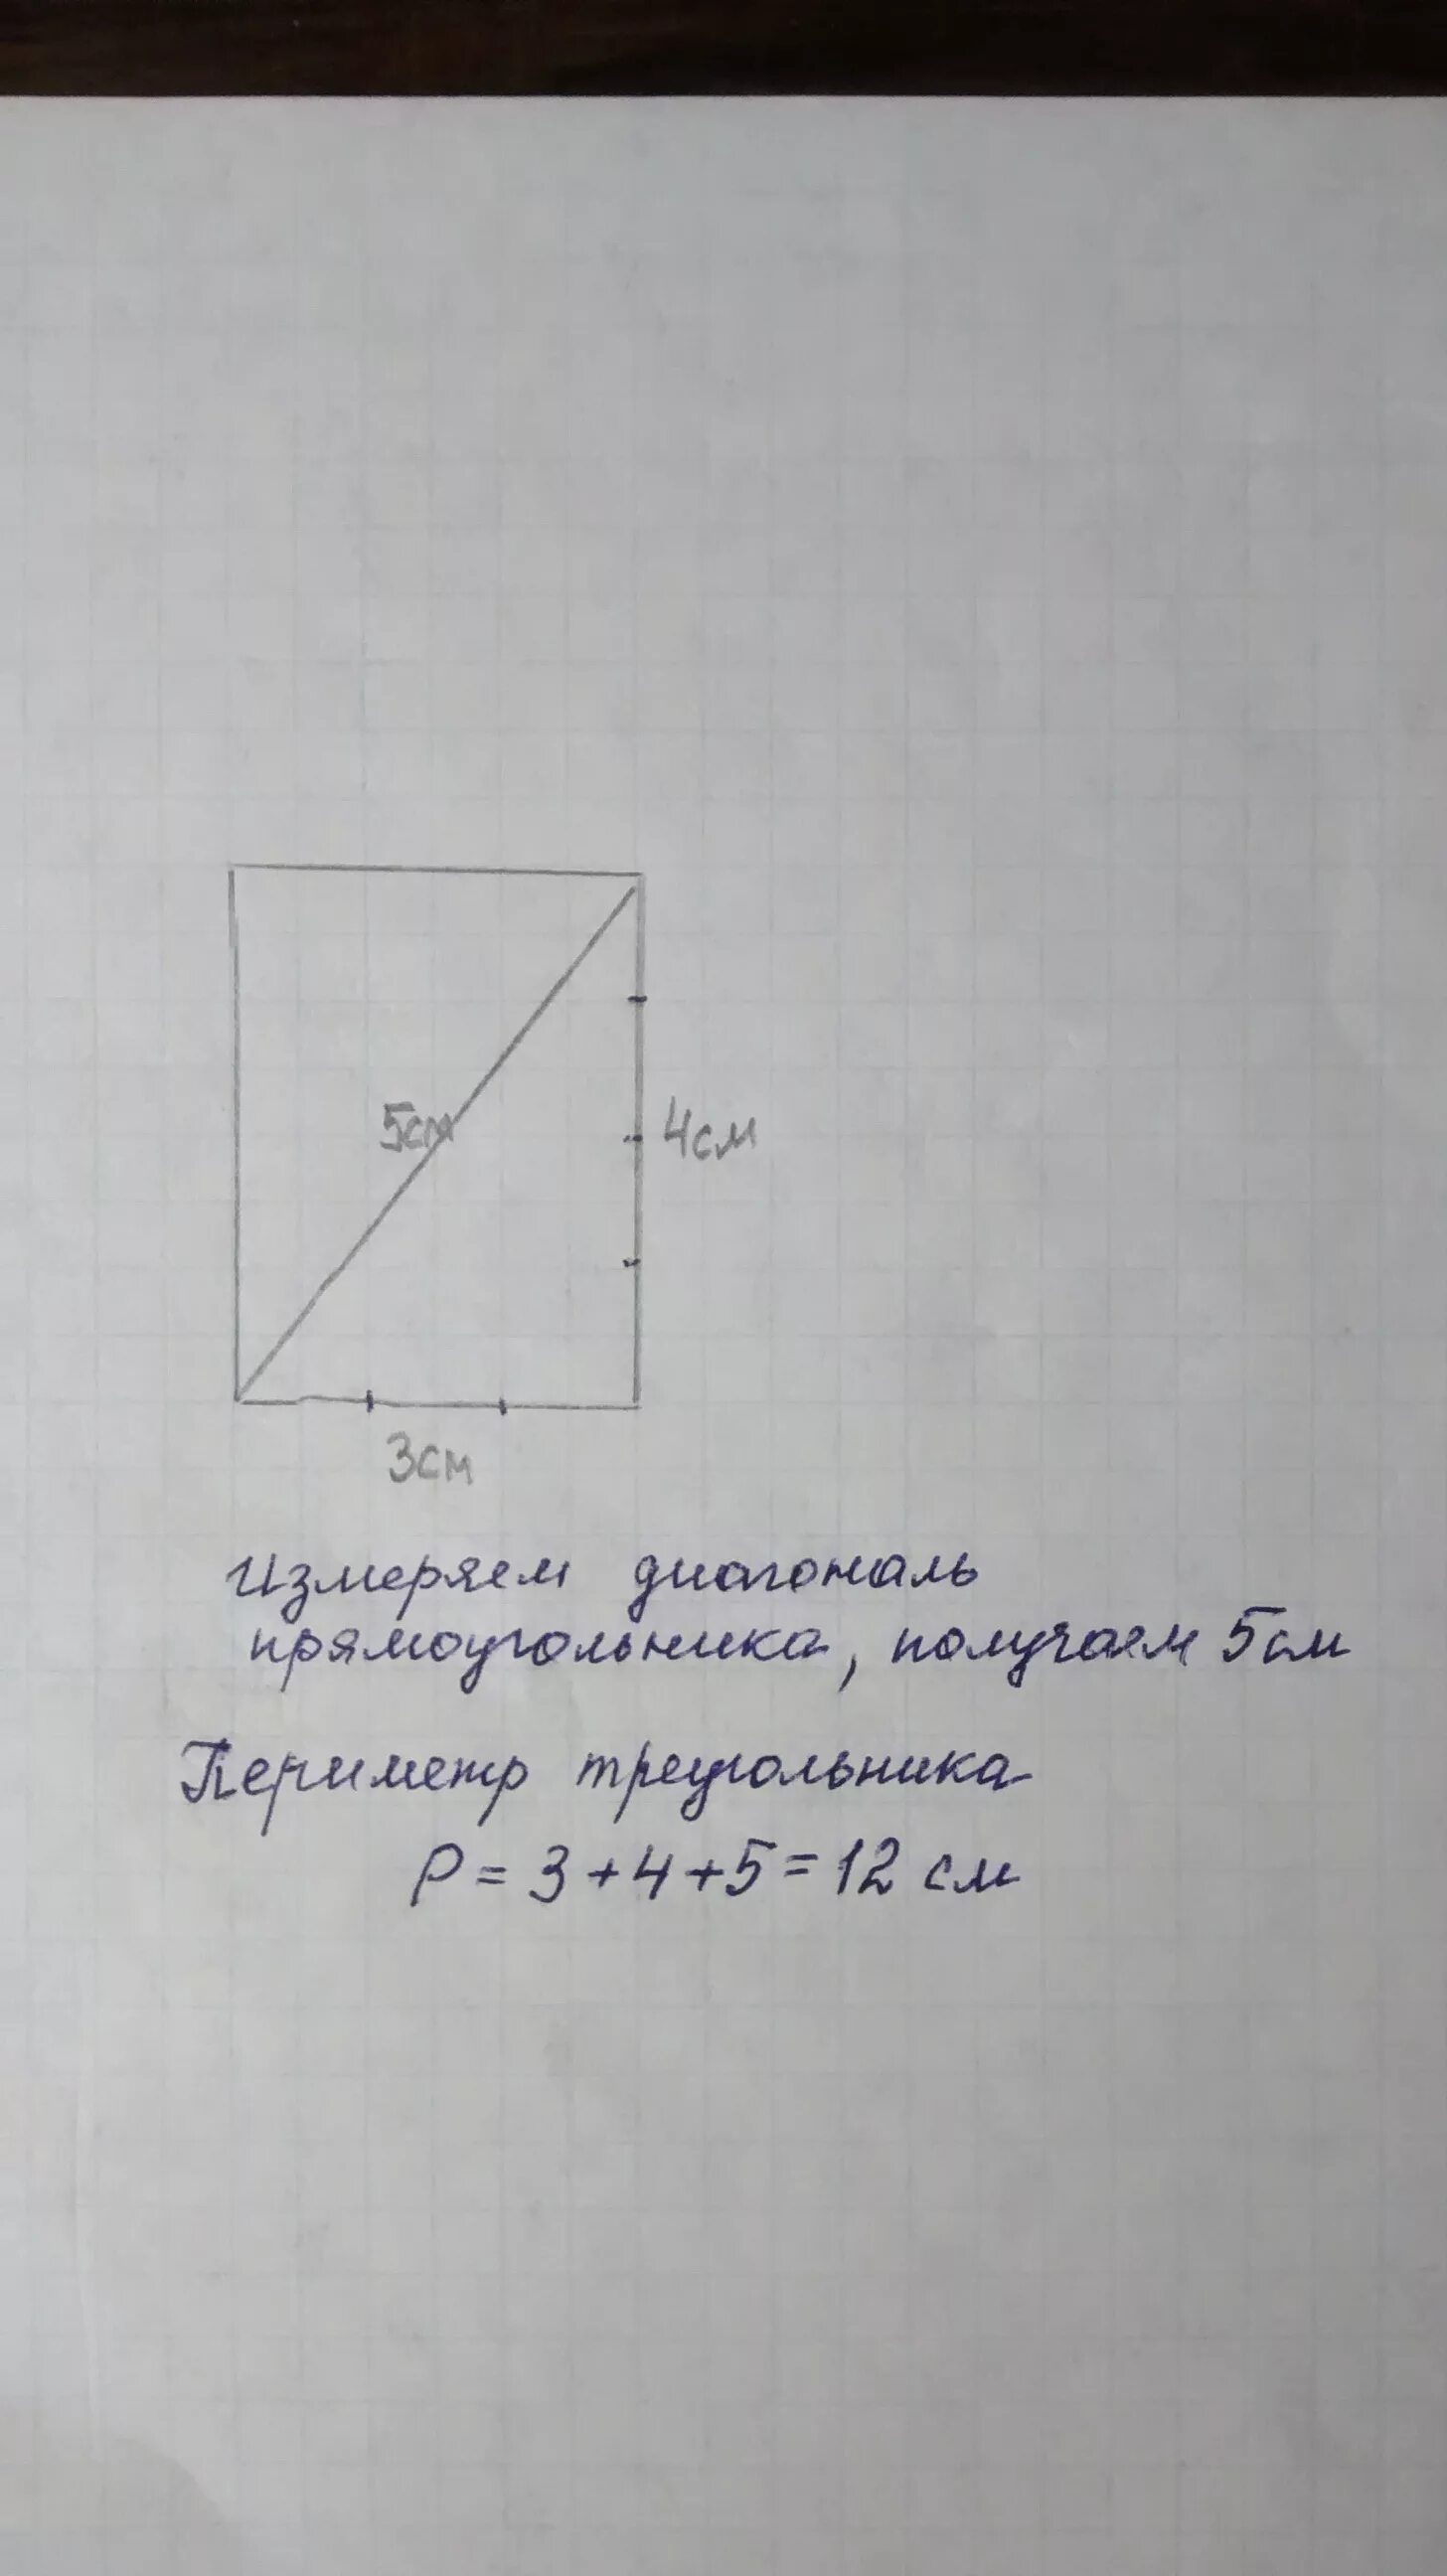 5см
4см
3см
Измеряем диагональ
прямоугольника, получаем 5см
Периметр треугольника
P = 3 + 4 + 5 = 12 см